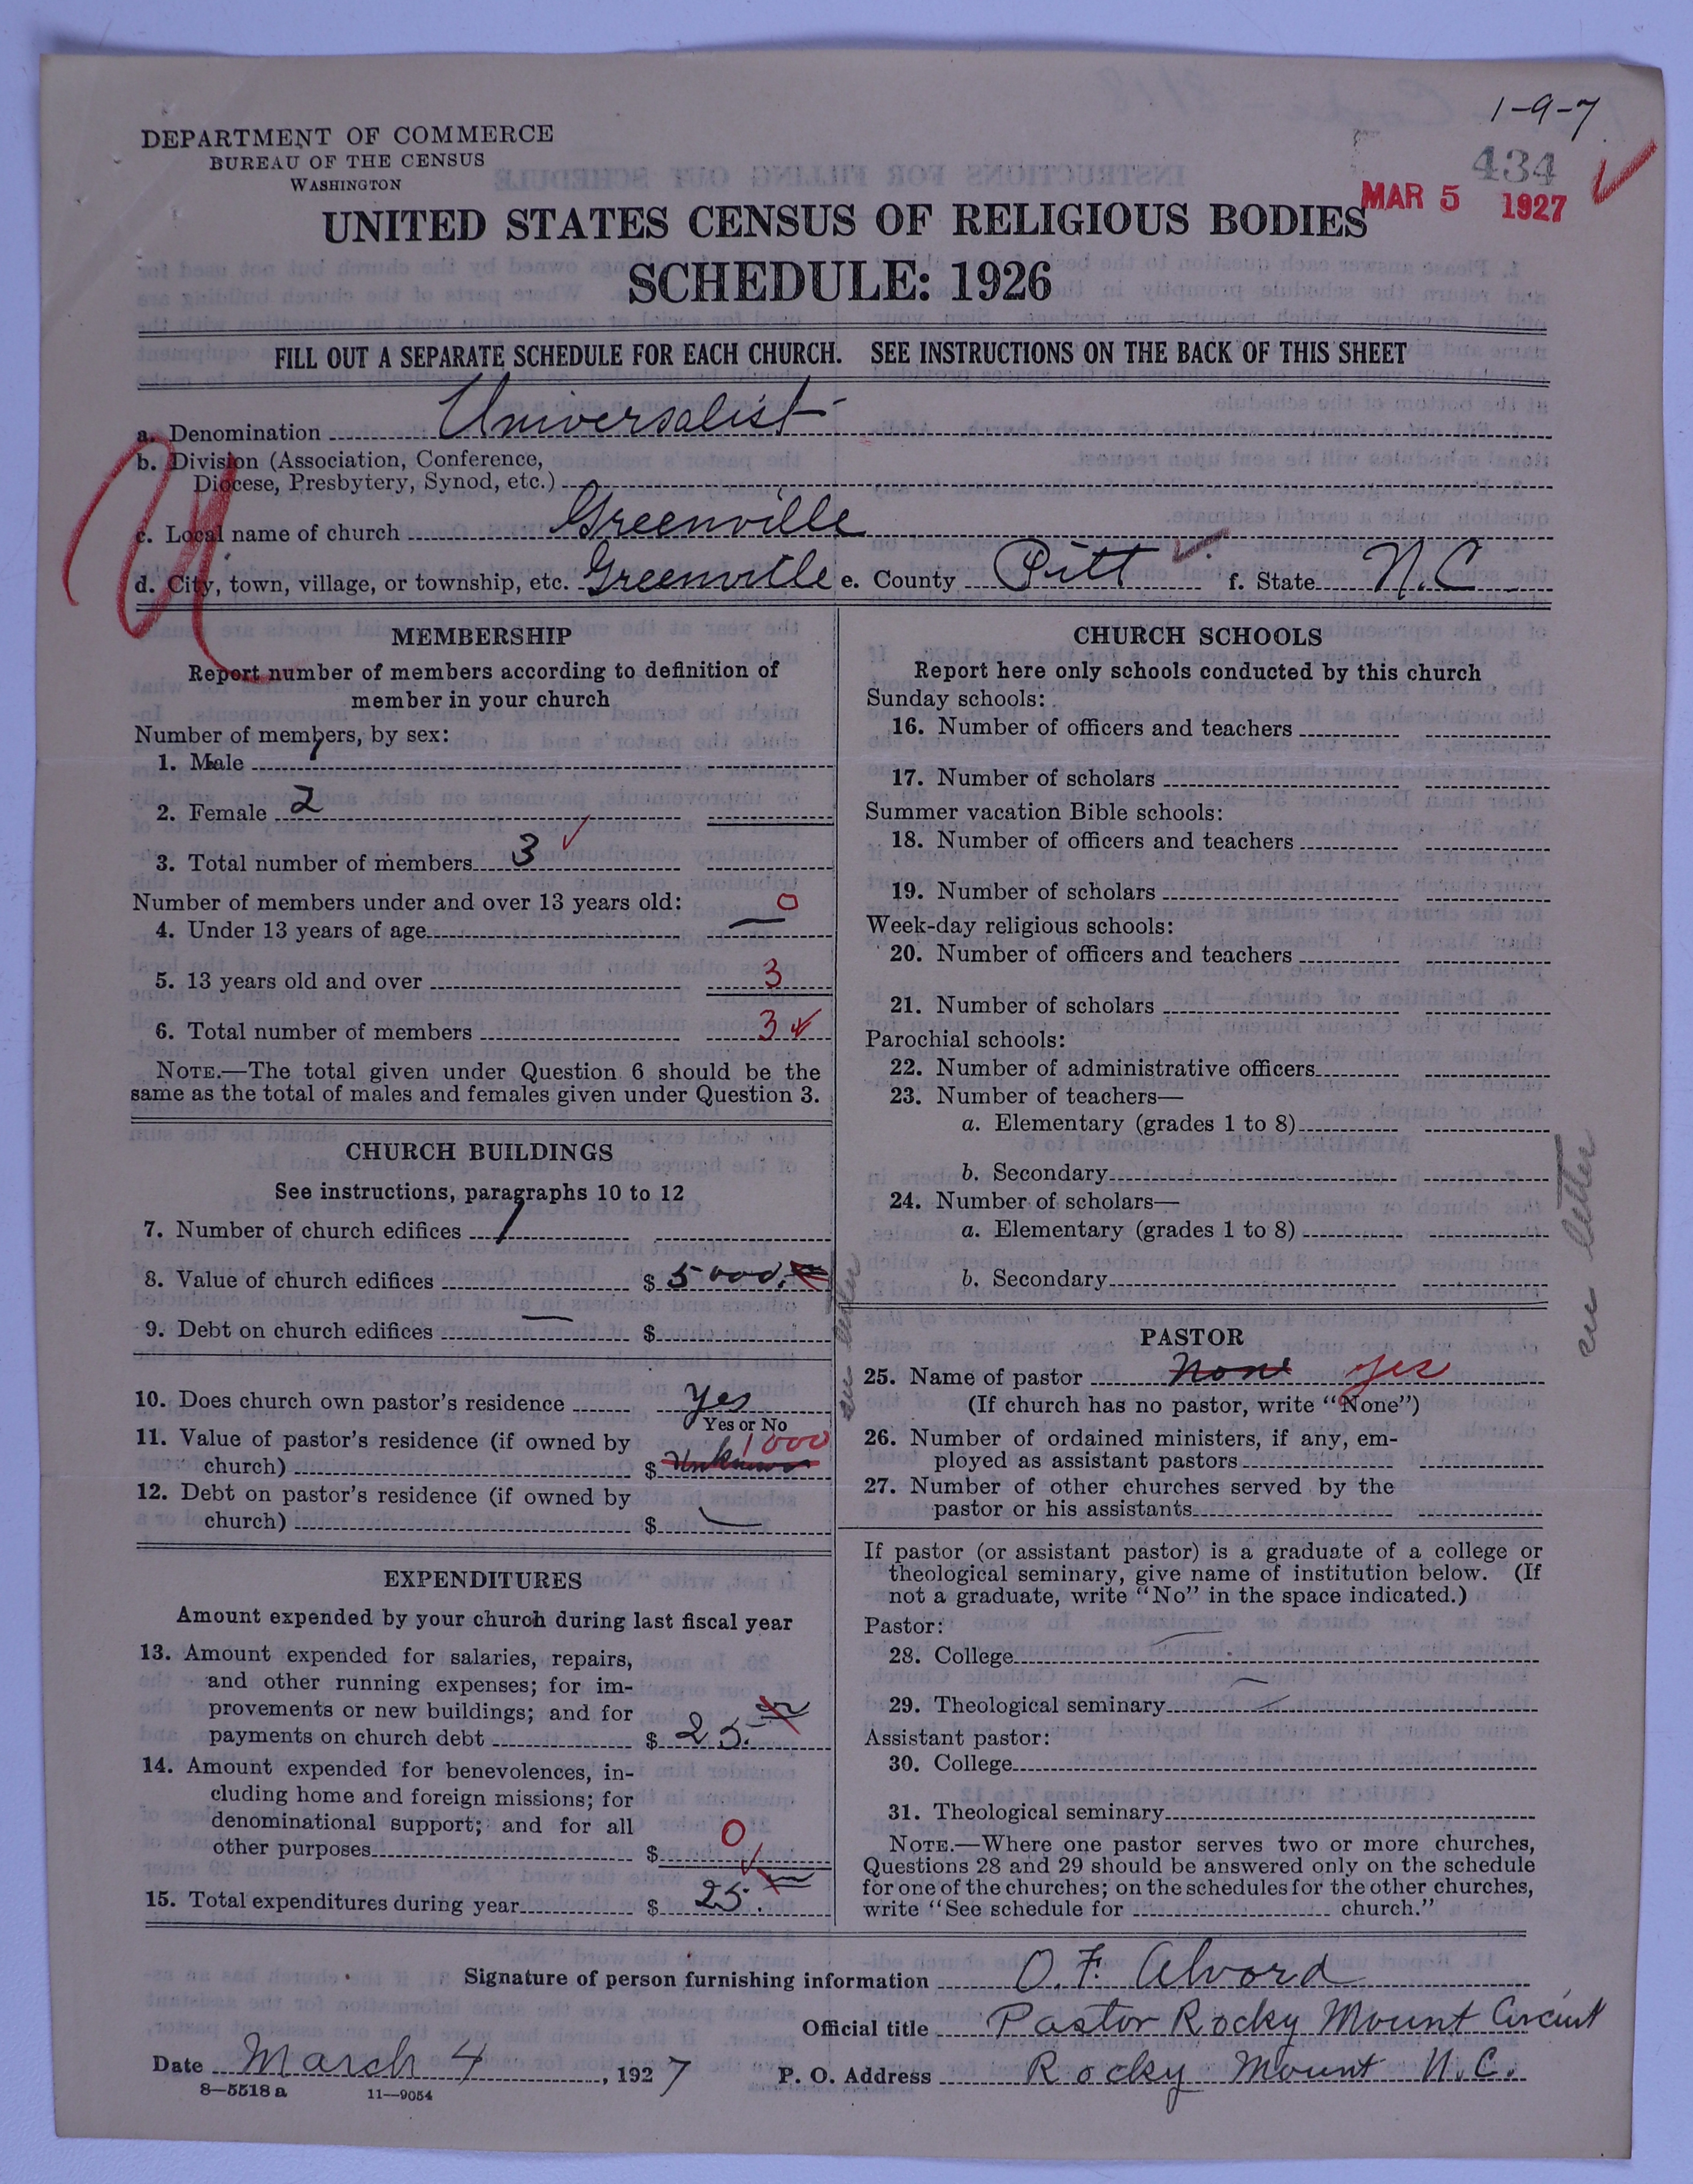 1-9-7
DEPARTMENT OF COMMERCE
BUREAU OF THE CENSUS
WASHINGTON
434
MAR 5 1927
UNITED STATES CENSUS OF RELIGIOUS BODIES
SCHEDULE: 1926
FILL OUT A SEPARATE SCHEDULE FOR EACH CHURCH. SEE INSTRUCTIONS ON THE BACK OF THIS SHEET
a. Denomination Universalist
b. Division (Association, Conference,
Diocese, Presbytery, Synod, etc.)
c. Local name of church Greenville
d. City, town, village, or township, etc. Greenville e. County Pitt f. State N.C.
U
MEMBERSHIP
Report number of members according to definition of
member in your church
Number of members, by sex:
1. Male 1
2. Female 2
3. Total number of members 3
Number of members under and over 13 years old:
4. Under 13 years of age — 0
5. 13 years old and over 3
6. Total number of members 3
NOTE.—The total given under Question 6 should be the
same as the total of males and females given under Question 3.
CHURCH BUILDINGS
See instructions, paragraphs 10 to 12
7. Number of church edifices 1
8. Value of church edifices $ 5000.
9. Debt on church edifices — $
10. Does church own pastor's residence yes
Yes or No
11. Value of pastor's residence (if owned by
church) $ Unknown 1000
12. Debt on pastor's residence (if owned by
church) $ —
EXPENDITURES
Amount expended by your church during last fiscal year
13. Amount expended for salaries, repairs,
and other running expenses; for im-
provements or new buildings; and for
payments on church debt $ 25.
14. Amount expended for benevolences, in-
cluding home and foreign missions; for
denominational support; and for all
other purposes $ 0
15. Total expenditures during year $ 25.
CHURCH SCHOOLS
Report here only schools conducted by this church
Sunday schools:
16. Number of officers and teachers
17. Number of scholars
Summer vacation Bible schools:
18. Number of officers and teachers
19. Number of scholars
Week-day religious schools:
20. Number of officers and teachers
21. Number of scholars
Parochial schools:
22. Number of administrative officers
23. Number of teachers—
a. Elementary (grades 1 to 8)
b. Secondary
24. Number of scholars—
a. Elementary (grades 1 to 8)
b. Secondary
see letter
see letter
PASTOR
25. Name of pastor None yes
(If church has no pastor, write "None")
26. Number of ordained ministers, if any, em-
ployed as assistant pastors
27. Number of other churches served by the
pastor or his assistants
If pastor (or assistant pastor) is a graduate of a college or
theological seminary, give name of institution below. (If
not a graduate, write "No" in the space indicated.)
Pastor:
28. College —
29. Theological seminary —
Assistant pastor:
30. College
31. Theological seminary
NOTE.—Where one pastor serves two or more churches,
Questions 28 and 29 should be answered only on the schedule
for one of the churches; on the schedules for the other churches,
write "See schedule for church."
Signature of person furnishing information O. F. Alvord
Official title Pastor Rocky Mount Circuit
Date March 4, 1927 P. O. Address Rocky Mount N.C.
8—5518 a 11—9054